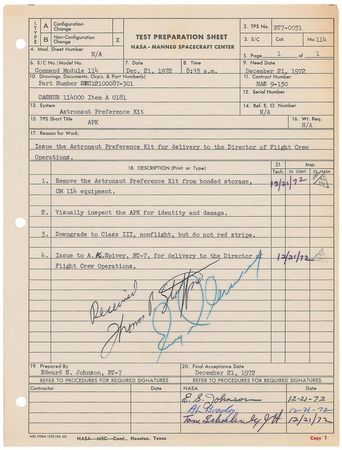 TYPE
A Configuration Change
B Non-Configuration Change
TEST PREPARATION SHEET
NASA - MANNED SPACECRAFT CENTER
2. TPS No. BT7-0051
3. S/C Cat. No. 114
4. Mod. Sheet No. N/A
5. Page 1 of 1
6. S/C No./ Model No. Command Module 114
7. Date Dec. 21, 1972
8. Time 8:35 a.m.
9. Need Date December 21, 1972
10. Drawings, Documents, Ocp's, & Part Number(s)
Part Number SEC12100087-301
NAS 9-150
CASHUR 114000 Item A 0181
13. System Astronaut Preference Kit
14. Ref. E. O. No. N/A
15. TPS Short Title APK
16. Wt. Req. N/A
17. Reason for Work:
Issue the Astronaut Preference Kit for delivery to the Director of Flight Crew
Operations.
18. DESCRIPTION (Print or Type)
21. Insp.
1. Remove the Astronaut Preference Kit from bonded storage,
CM 114 equipment.
12/21/72
2. Visually inspect the APK for identity and damage.
3. Downgrade to Class III, nonflight, but do not red stripe.
4. Issue to A.K.Spivey, BT-7, for delivery to the Director of
Flight Crew Operations.
12/21/72
Received
19. Prepared By
Edward S. Johnson, BT-7
20. Final Acceptance Date
December 21, 1972
REFER TO PROCEDURES FOR REQUIRED SIGNATURES
REFER TO PROCEDURES FOR REQUIRED SIGNATURES
Contractor Date NASA Date
E. S. Johnson 12-21-72
12-21-72
12/21/72
MSC FORM 1225 (JUL 65)
NASA—MSC—Coml., Houston, Texas
Copy 1